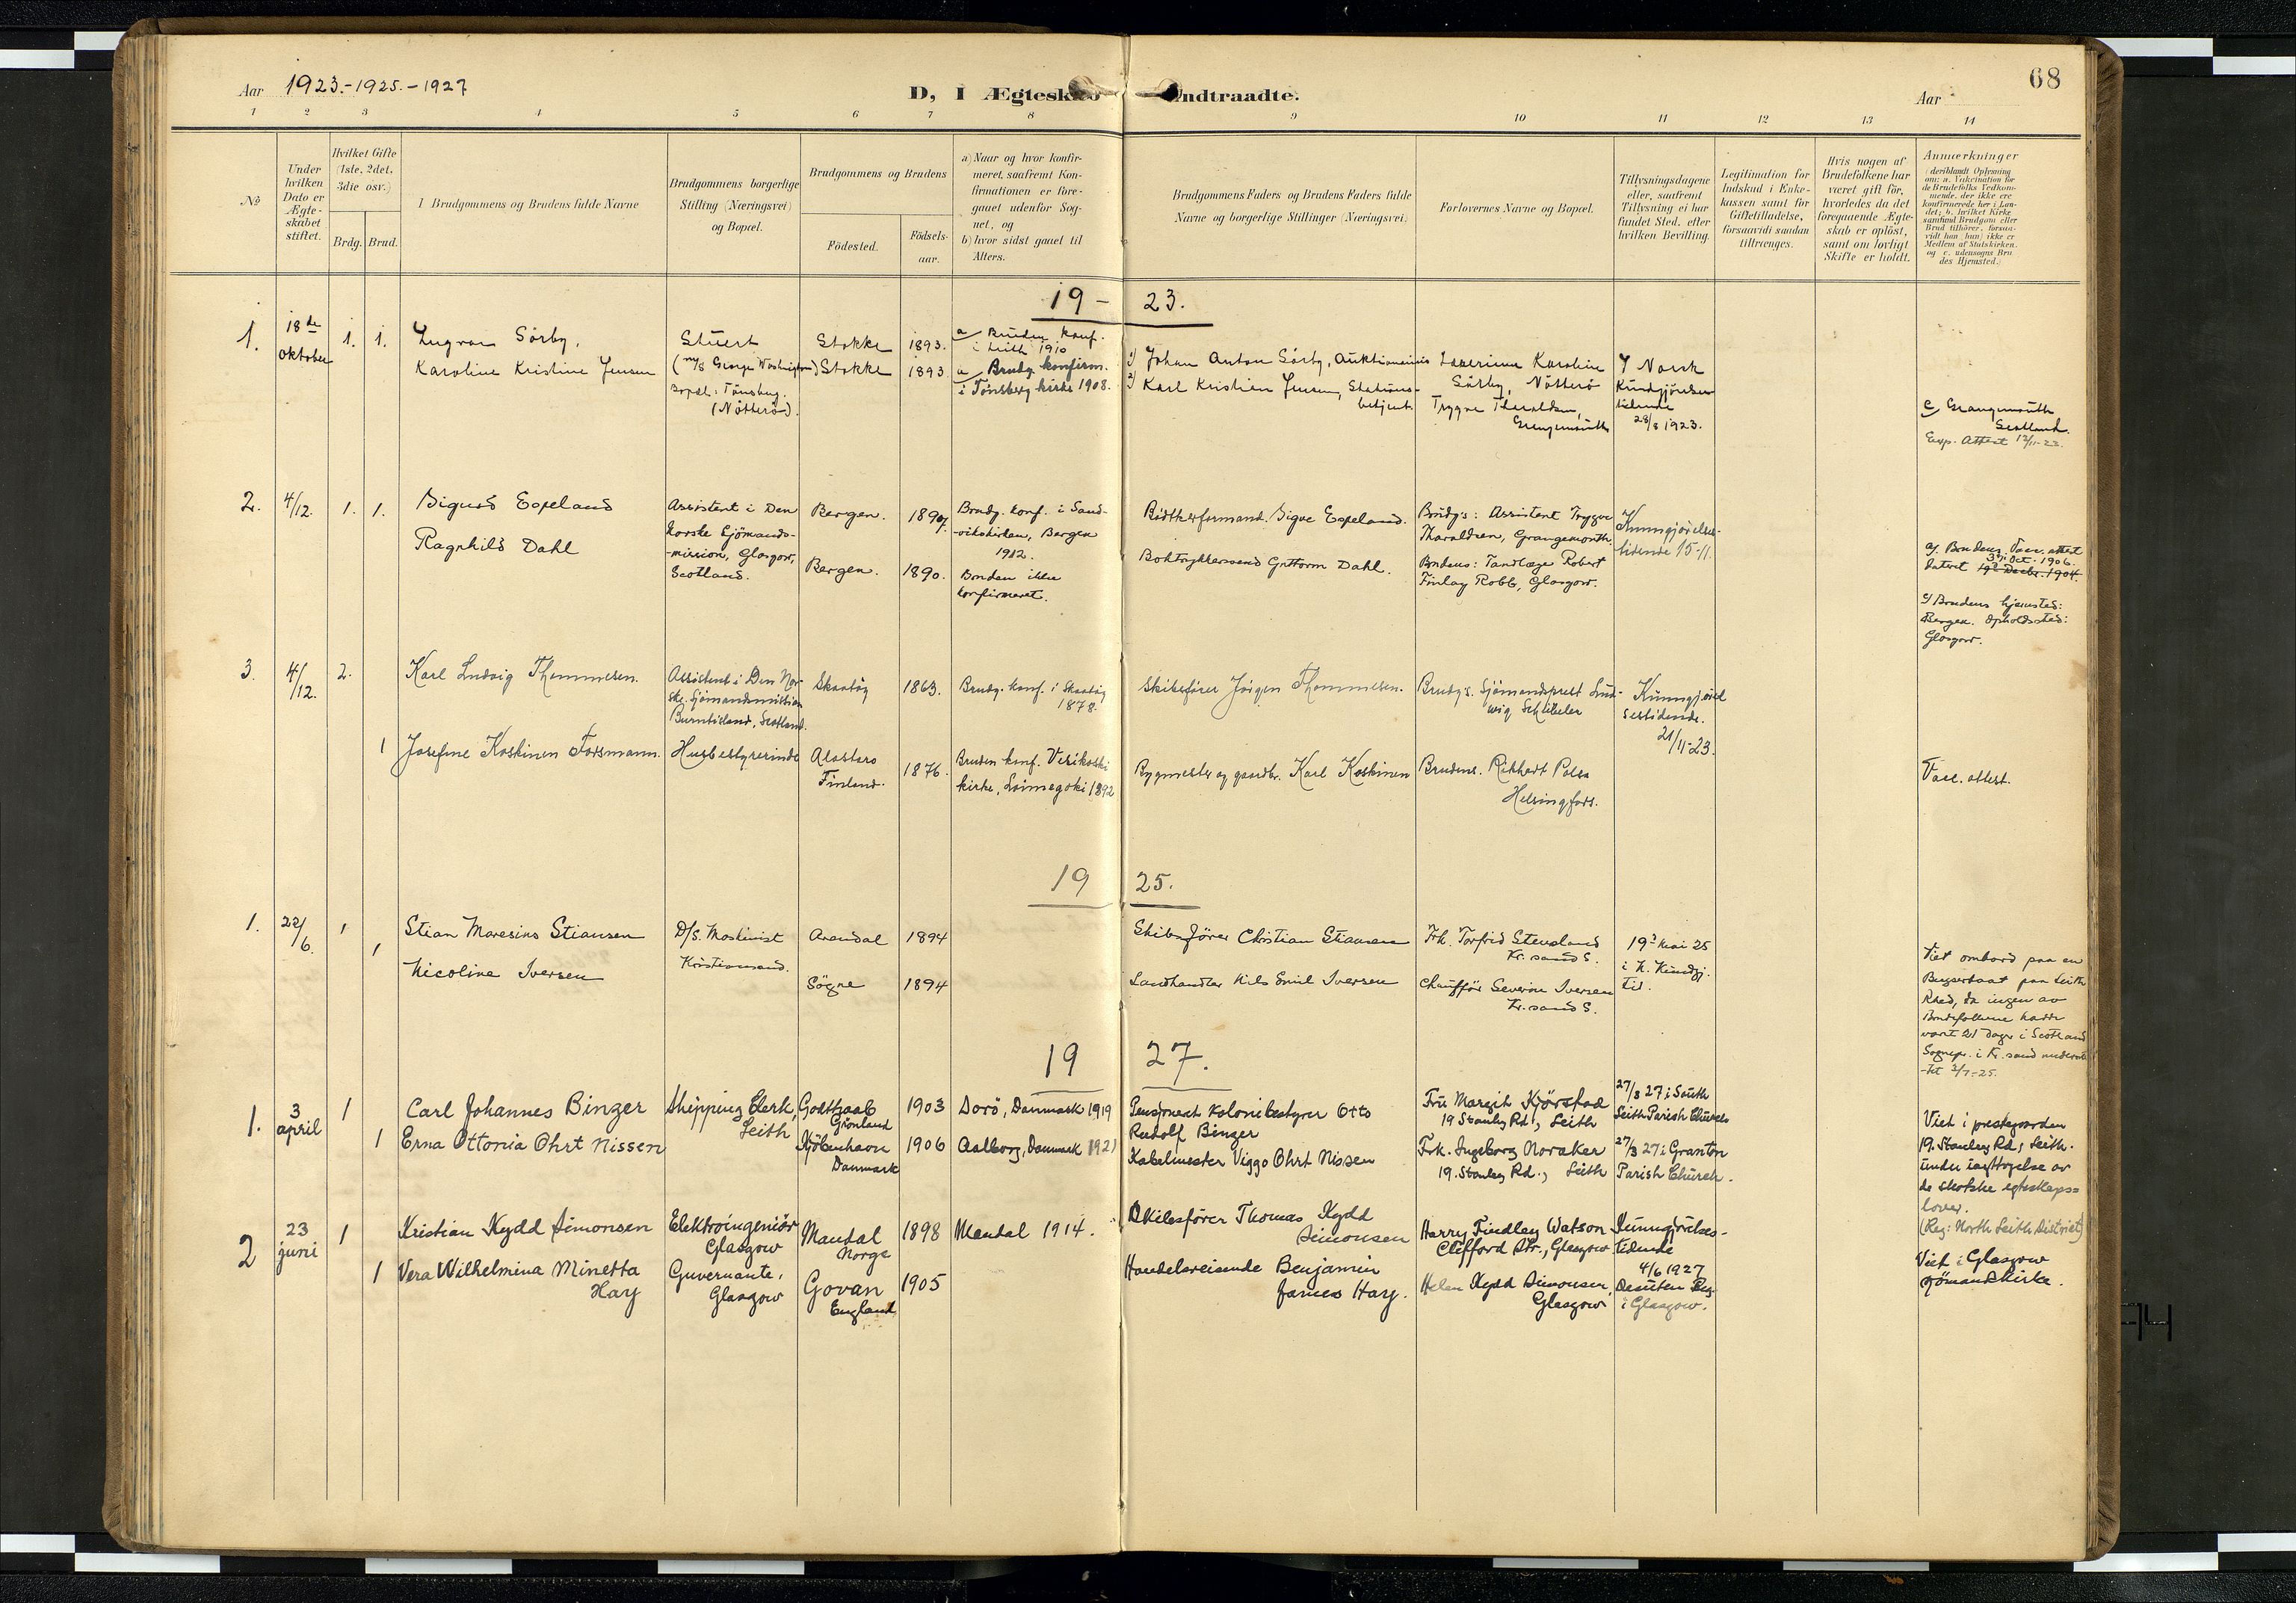 68
Aar 1923.-1925.-1927
D, I Ægteskab Indtraadte.
Aar
1 2 3 4 5 6 7 8 9 10 11 12 13 14
No
Under hvilken Dato er Ægteskabet stiftet.
Hvilket Gifte (1ste, 2det, 3die osv.)
Brdg. Brud.
Brudgommens og Brudens fulde Navne
Brudgommens borgerlige Stilling (Næringsvei) og Bopæl.
Brudgommens og Brudens
Födested.
Födselsaar.
a) Naar og hvor konfirmeret, saafremt Konfirmationen er foregaaet udenfor Sognet, og
b) hvor sidst gaaet til Alters.
Brudgommens Faders og Brudens Faders fulde Navne og borgerlige Stillinger (Næringsvei)
Forlovernes Navne og Bopæl.
Tillysningsdagene eller, saafremt Tillysning ei har fundet Sted, efter hvilken Bevilling.
Legitimation for Indskud i Enkekassen samt for Giftetilladelse, forsaavidt saadan tiltrænges.
Hvis nogen af Brudefolkene har været gift för, hvorledes da det foregaaende Ægteskab er oplöst, samt om lovligt Skifte er holdt.
Anmærkninger
(deriblandt Oplysning om: a. Vakcination for de Brudefolks Vedkommende, der ikke ere konfirmerede her i Landet; b. hvilket Kirkesamfund Brudgom eller Brud tilhører, forsaavidt han (hun) ikke er Medlem af Statskirken, og c. udensogns Brudes Hjemsted.)
19 - 23.
1. 18de oktober 1. 1.
Yngvar Sörby,
Karoline Kristine Jensen
Stuert
(m/s George Washington)
Bopæl: Tönsberg.
(Nötterö).
Stokke 1893.
Stokke 1893
a/ Bruden konf.
i Leith 1910
a/ Brudg. konfirm.
i Tönsberg kirke 1908.
1) Johan Anton Sörby, Auktionarius
2) Karl Kristian Jensen, Stationsbetjent
Karoline
Sörby, Nötterö
Trygve Tharaldsen,
Grangemouth
I Norsk
Kundgjörelsestidende
28/8 1923.
c/ Grangemouth
Scotland.
Exp. Attest 12/11-23.
2. 4/12. 1. 1.
Sigurd Espeland
Ragnhild Dahl
Assistent i Den
Norske Sjömands-
-mission, Glasgow,
Scotland.
Bergen. 1897.
Bergen. 1890.
Brudg. konf. i Sand-
-vikskirken, Bergen
1912.
Bruden ikke
konfirmeret.
Bödtkerformand Sigve Espeland.
Boktrykkersvend Guttorm Dahl.
Brudg's: Assistent Trygve
Tharaldsen, Grangemouth.
Brudens: Tandlæge Robert
Finlay Robb, Glasgow.
Kunngjörelses-
tidende 15-11.
a/. Brudens Vacc. attest
3dje Oct. 1906.
datert 19de Decbr. 1904.
c/ Brudens hjemsted:
Bergen. Opholdssted:
Glasgow.
3. 4/12. 2.
Karl Ludvig Thommesen.
Assistent i Den Nor-
ske Sjömandsmission
Burntisland, Scotland.
Skaatöy 1863.
Brudg. konf. i Skaatöy
1878.
Skibsförer Jörgen Thommesen.
Brudg's. Sjömandsprest Lud-
wig Schübeler
Kunngjörel
sestidende.
21/11-23.
1 Josefine Koskinen Forsmann.
Husbestyrerinde
Alastaro
Finland. 1876.
Bruden konf. Virikoski
kirke, Loimegoki 1892
Bygmester og gaardbr. Karl Koskinen
Brudens. Rikhart Polsa
Helsingfors.
Vacc. attest.
19 25.
1. 22/6. 1 1
Stian Maresius Stiansen
Nicoline Iversen
D/S. Maskinist
Kristiansand.
Arendal 1894
Sögne 1894
Skibsförer Christian Stiansen
Landhandler Nils Emil Iversen
Frk. Torfrid Stensland
Kr. sand S.
Chaufför Severin Iversen
Kr. sand S.
19de mai 25
i N. Kundgj.
tid.
Viet ombord paa en
Bugserbaat paa Leith
Rhed, da ingen av
Brudefolkene hadde
været 21 dage i Scotland
Sognepr. i Kr. sand underret-
-tet 2/7-25.
19 27.
1. 3 april 1
Carl Johannes Binzer
1 Erna Ottonia Ohrt Nissen
Shipping Clerk,
Leith
Godthaab
Grönland 1903
Kjöbenhavn
Danmark 1906
Sorö, Danmark 1919
Aalborg, Danmark 1921
Pensjonert Kolonibestyrer Otto
Rudolf Binzer
Kabelmester Viggo Ohrt Nissen
Fru Margit Kjörstad
19 Stanley Rd., Leith
Frk. Ingeborg Noraker
19. Stanley Rd., Leith
27/3 27 i South
Leith Parish Church
27/3 27 i Granton
Parish Church.
Viet i prestegaarden
19. Stanley Rd, Leith.
under iagttagelse av
de skotske egteskaps=
lover.
(Reg: North Leith District)
2 23 juni 1
Kristian Kydd Simonsen
1 Vera Wilhelmina Minetta
Hay
Elektroingeniör
Glasgow
Guvernante,
Glasgow
Mandal
Norge 1898
Govan
England 1905
Mandal 1914.
Skibsförer Thomas Kydd
Simonsen
Handelsreisende Benjamin
James Hay.
Harry Findley Watson
Clifford Str., Glasgow
Helen Kydd Simonsen,
Glasgow
Kunngjörelses-
tidende
4/6 1927
Desuten Reg.
i Glasgow.
Viet i Glasgow
sjömandskirke.